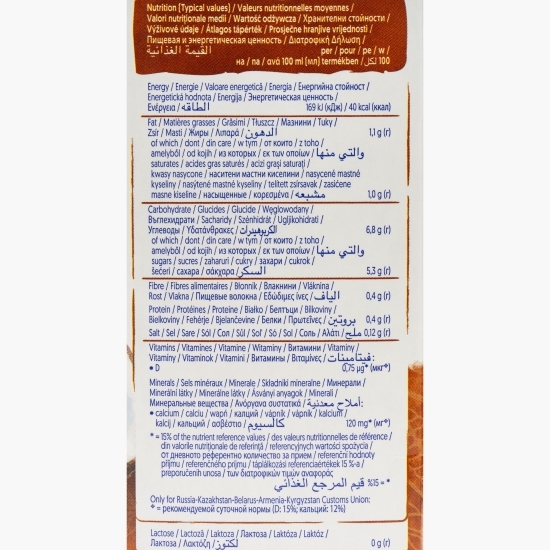 Nutrition [Typical values] / Valeurs nutritionnelles moyennes /
Valori nutriționale medii / Wartość odżywcza / Хранителни стойности /
Výživové údaje / Átlagos tápérték / Prosječne hranjive vrijednosti /
Пищевая и энергетическая ценность / Διατροφική Δήλωση /
القيمة الغذائية per / pour / pe / w /
на / na / ανά 100 ml [мл] termékben / لكل 100
Energy / Energie / Valoare energetică / Energia / Енергийна стойност /
Energetická hodnota / Energija / Энергетическая ценность /
Ενέργεια / الطاقه 169 kJ (кДж) / 40 kcal (ккал)
Fat / Matières grasses / Grăsimi / Tłuszcz / Мазнини / Tuky /
Zsír / Masti / Жиры / Λιπαρά / الدهون 1,1 g (г)
of which / dont / din care / w tym / от които / z toho /
amelyből / od kojih / из которых / εκ των οποίων / والتي منها
saturates / acides gras saturés / acizi grași saturați /
kwasy nasycone / наситени мастни киселини / nasycené mastné
kyseliny / nasýtené mastné kyseliny / telített zsírsavak / zasićene
masne kiseline / насыщенные / κορεσμένα / مشبعه 1,0 g (г)
Carbohydrate / Glucides / Glucide / Węglowodany /
Въглехидрати / Sacharidy / Szénhidrát / Ugljikohidrati /
Углеводы / Υδατάνθρακες / الكربوهيدرات 6,8 g (г)
of which / dont / din care / w tym / от които / z toho /
amelyből / od kojih / из которых / εκ των οποίων / والتي منها
sugars / sucres / zaharuri / cukry / захари / cukrok /
šećeri / сахара / σάκχαρα / السكر 5,3 g (г)
Fibre / Fibres alimentaires / Błonnik / Влакнини / Vláknina /
Rost / Vlakna / Пищевые волокна / Εδώδιμες ίνες / الياف 0,4 g (г)
Protein / Protéines / Proteine / Białko / Белтъци / Bílkoviny /
Bielkoviny / Fehérje / Bjelančevine / Белки / Πρωτεΐνες / بروتين 0,4 g (г)
Salt / Sel / Sare / Sól / Сол / Sůl / Soľ / Só / Sol / Соль / Αλάτι / ملح 0,12 g (г)
Vitamins / Vitamines / Vitamine / Witaminy / Витамини / Vitaminy /
Vitamíny / Vitaminok / Vitamini / Витамины / Βιταμίνες / فيتامينات:
• D 0,75 µg* (мкг*)
Minerals / Sels minéraux / Minerale / Składniki mineralne / Минерали /
Minerální látky / Minerálne látky / Ásványi anyagok / Minerali /
Минеральные вещества / Ανόργανα συστατικά / أملاح معدنية:
• calcium / calciu / wapń / калций / vápník / vápnik / kalcium /
kalcij / кальций / ασβέστιο / كالسيوم 120 mg* (мг*)
* = 15% of the nutrient reference values / des valeurs nutritionnelles de référence /
din valorile nutriționale de referință / referencyjnych wartości spożycia /
от дневното референтно количество за прием / referenční hodnoty
příjmu / referenčného príjmu / táplálkozási referenciaértékek 15 %-a /
preporučenih unosa / των διατροφικών τιμών αναφοράς
%15= * قيم المرجع الغذائي
Only for Russia-Kazakhstan-Belarus-Armenia-Kyrgyzstan Customs Union:
* = рекомендуемой суточной нормы (D: 15%; кальций: 12%)
Lactose / Lactoză / Laktoza / Лактоза / Laktóza / Laktóz /
Лактоза / Λακτόζη / لكتوز 0 g (г)